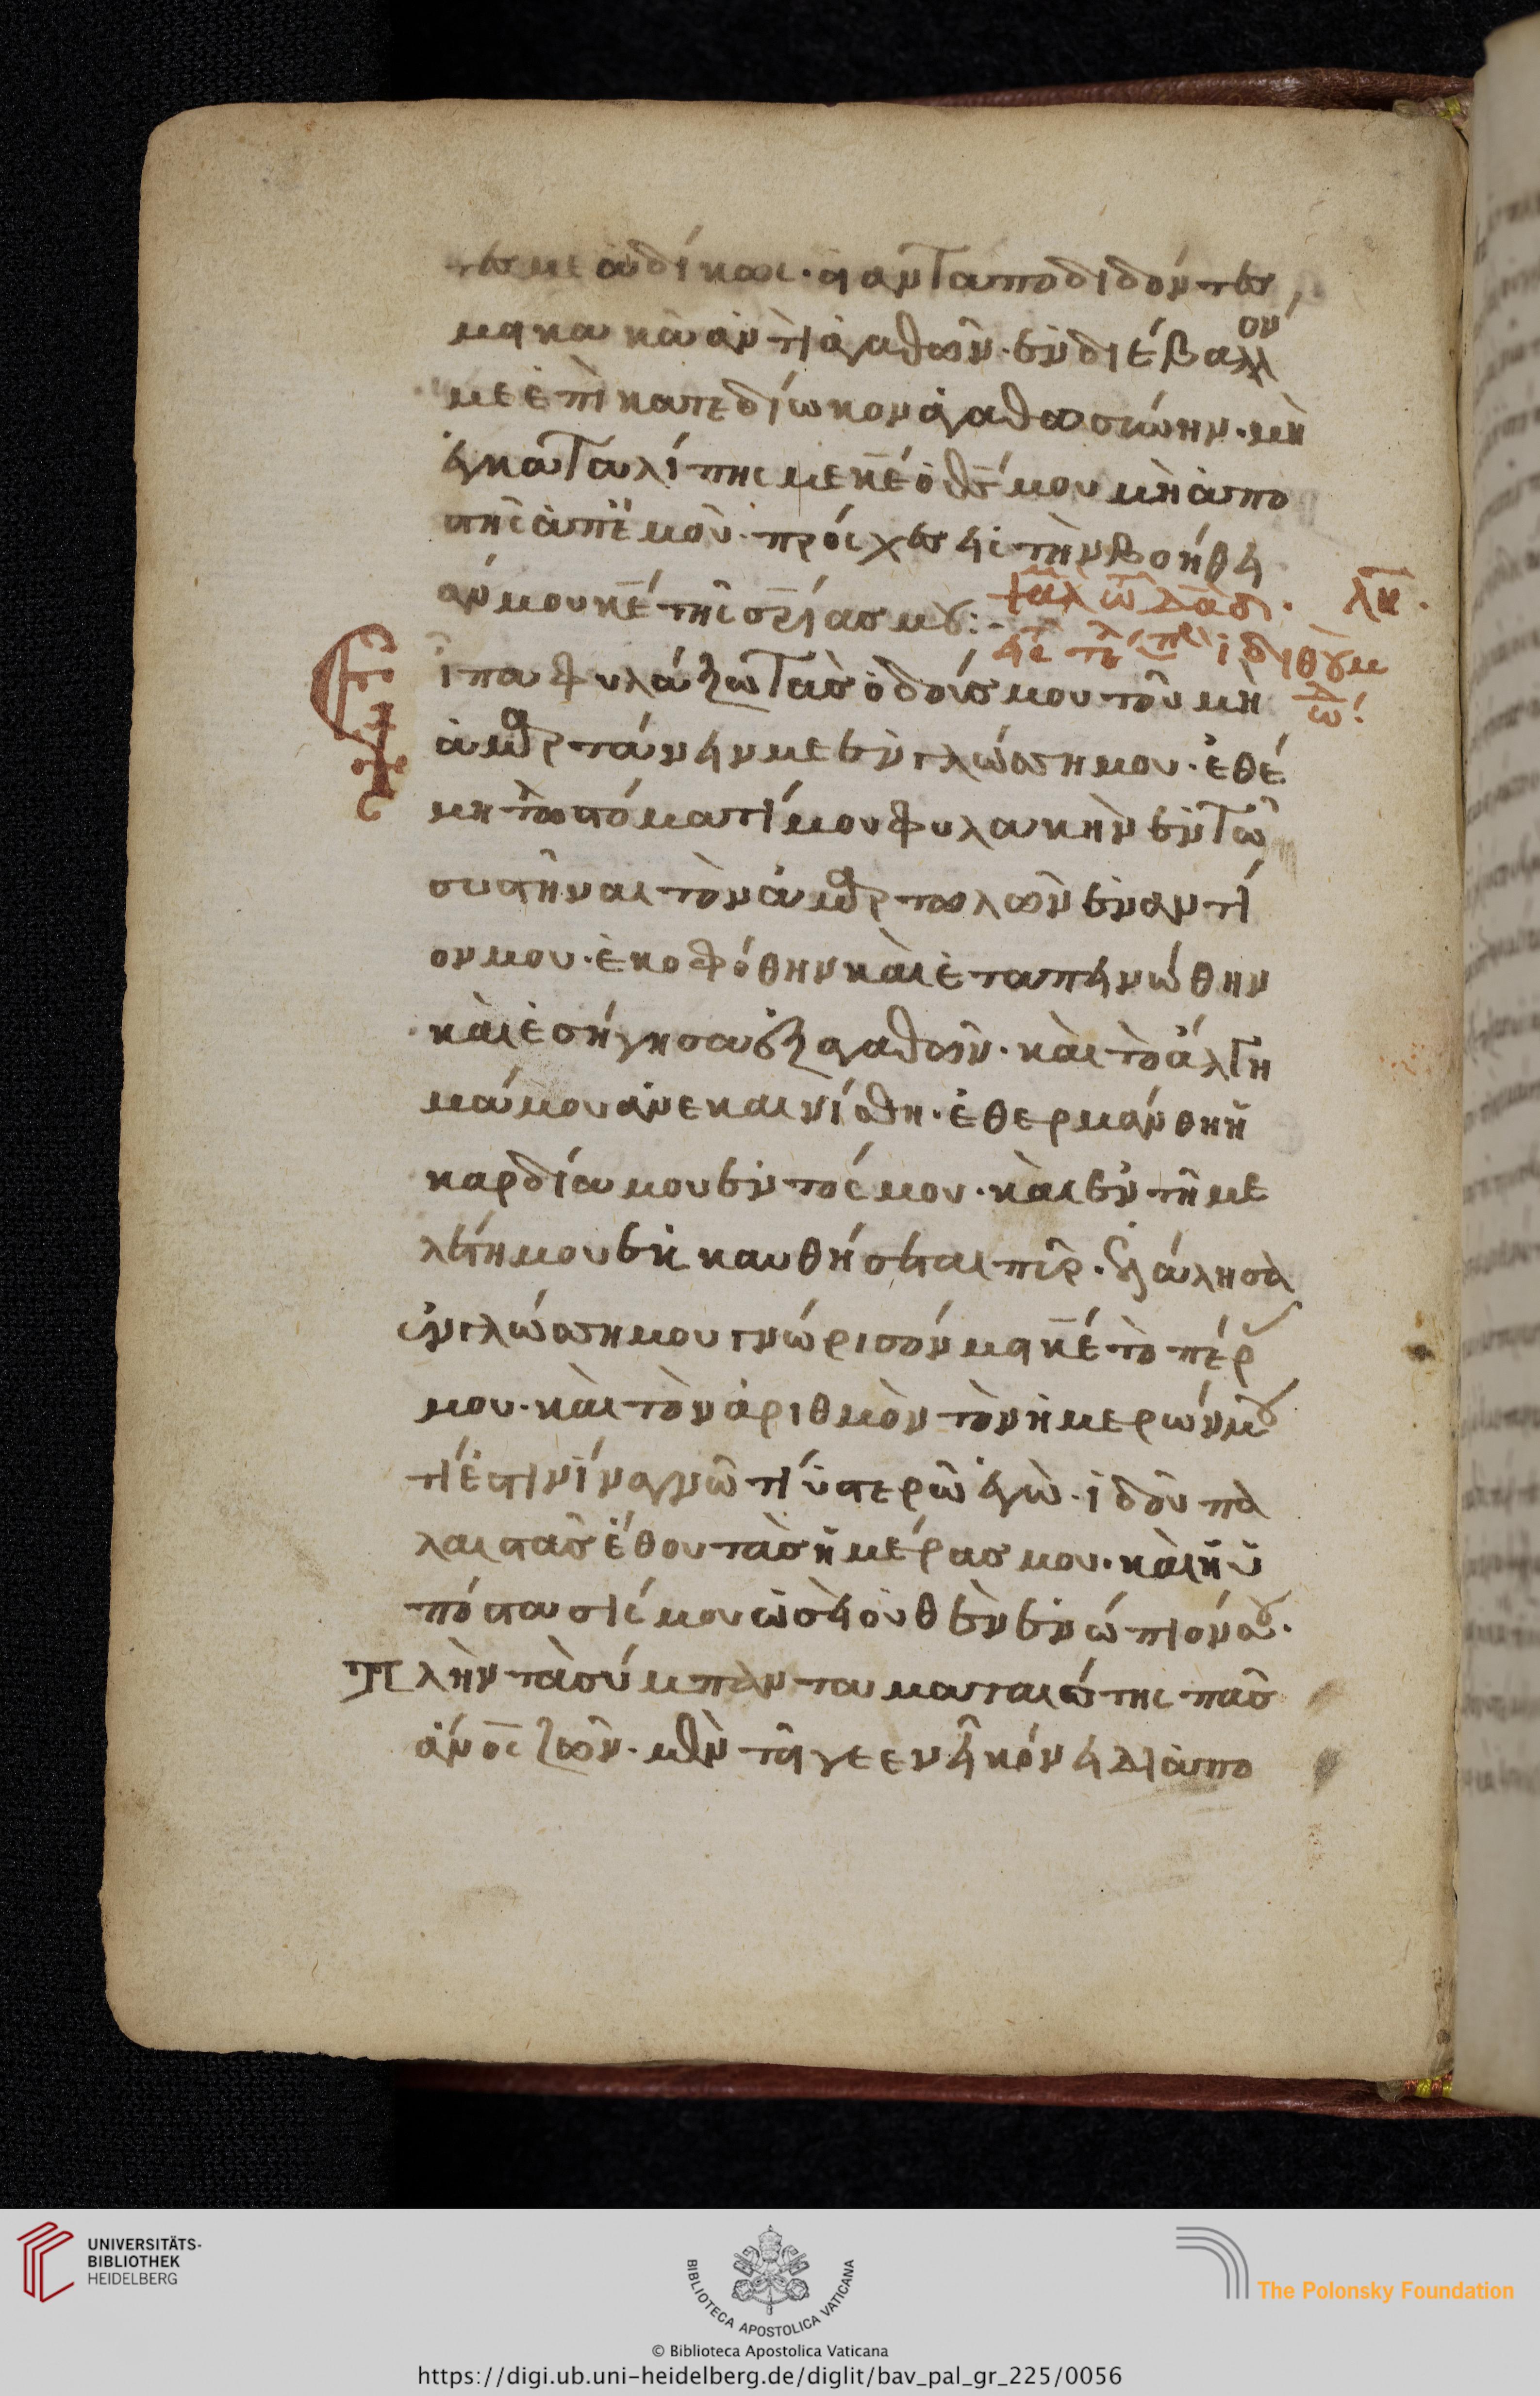 τές με ἀδίκως· οἱ ἀνταποδιδόντες
μοι κακὰ ἀντὶ ἀγαθῶν· ἐνδιέβαλλον
με ἐπὶ κατεδίωκον ἀγαθωσύνην· μὴ
ἐγκαταλίπης με κ̅ε̅ ὁ θ̅ς̅ μου μὴ ἀπο
στῆς ἀπ' ἐμοῦ· πρόσχες εἰς τὴν βοήθει
άν μου κ̅ε̅ τῆς σ̅ρ̅ίας μου:-
ψαλ τῶ δαδ·
λη·
εἰς τὸ τέλ ἰδιθουμ
ὠδ
Εἶπα φυλάξω τὰς ὁδούς μου τοῦ μὴ
ἁμαρτάνειν με ἐν γλώσση μου· ἐθέ
μη τῶ στόματί μου φυλακὴν ἐν τῶ
συστῆναι τὸν ἁμαρτωλὸν ἐναντί
ον μου· ἐκοφόθην καὶ ἐταπεινώθην
καὶ ἐσήγησα ἐξ ἀγαθῶν· καὶ τὸ ἄλγη
μά μου ἀνεκαινίσθη· ἐθερμάνθη ἡ
καρδία μου ἐντός μου· καὶ ἐν τῆ με
λέτη μου ἐκκαυθήσεται πῦρ· ἐλάλησα
ἐν γλώσση μου γνώρισόν μοι κ̅ε̅ τὸ πέρ
μου· καὶ τὸν ἀριθμὸν τὸν ἡμερών μου
τίς ἐστιν ἵνα γνῶ τί ὑστερῶ ἐγὼ· ἰδοῦ πα
λαιστὰς ἔθου τὰς ἡμέρας μου· καὶ ἡ ὑ
πόστασίς μου ὡσεὶ οὐθὲν ἐνώπιόν σου·
Πλὴν τὰ σύμπαντα ματαιώτης πᾶς
ἄν̅ο̅ς ζῶν· μὲν τοι γε ἐν εἰκόνει διαπο
UNIVERSITÄTS-
BIBLIOTHEK
HEIDELBERG
BIBLIOTECA APOSTOLICA VATICANA
The Polonsky Foundation
© Biblioteca Apostolica Vaticana
https://digi.ub.uni-heidelberg.de/diglit/bav_pal_gr_225/0056